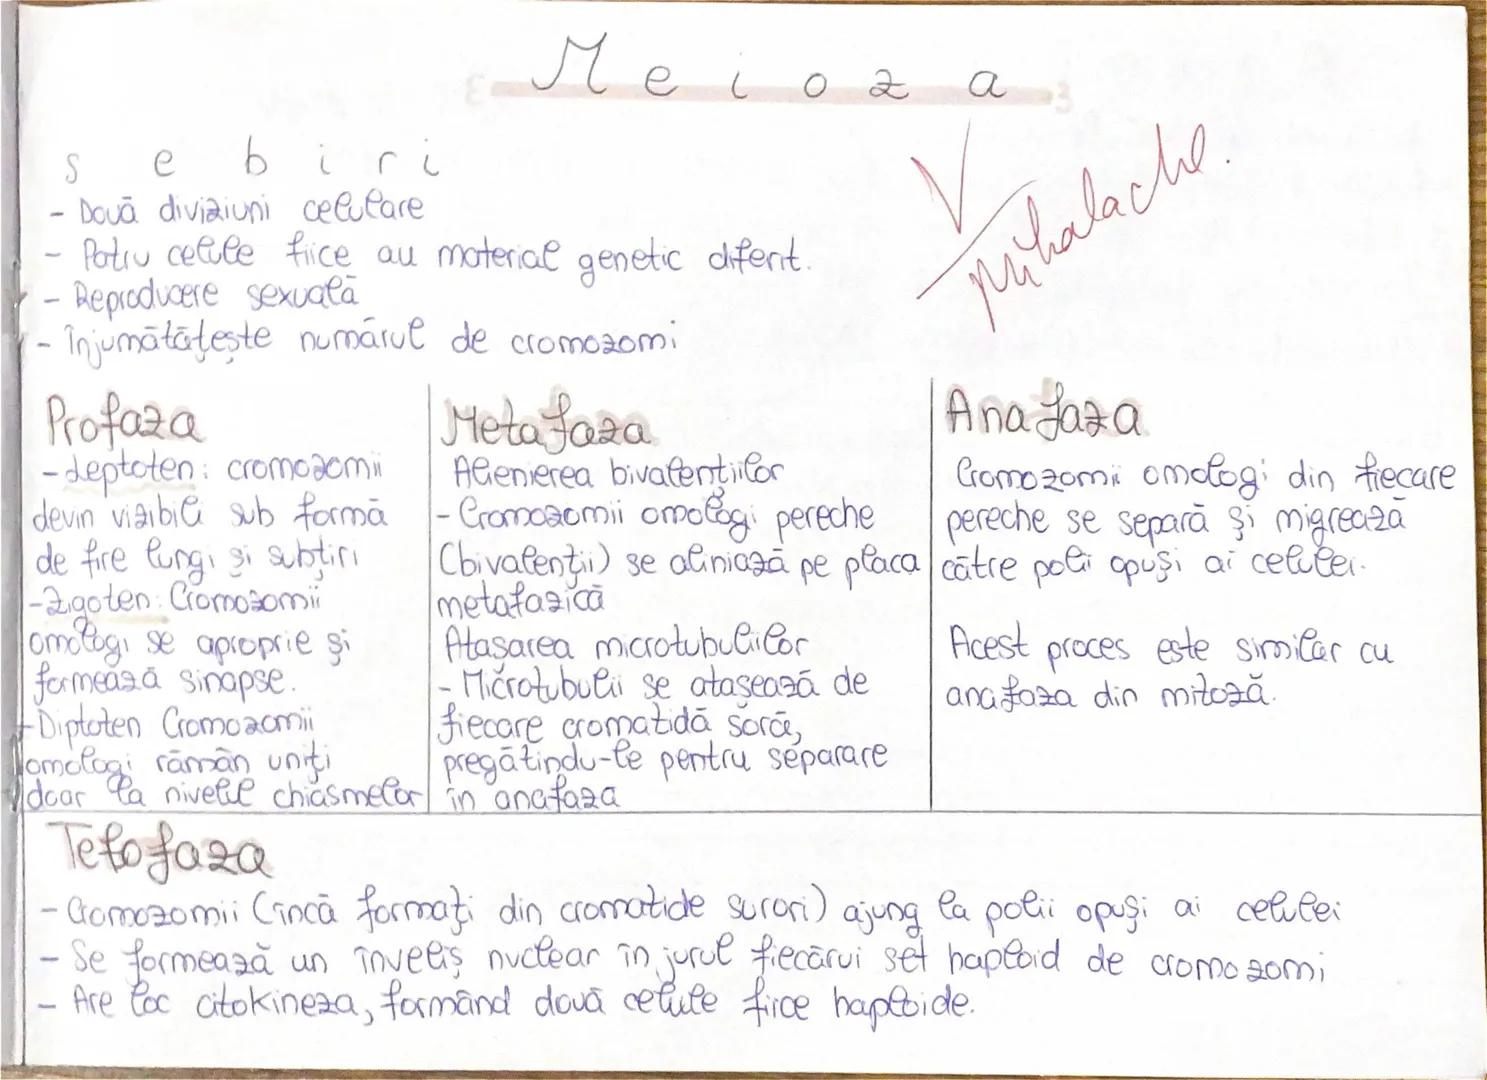 Meioza
sebiri
- Două diviziuni celulare
- Patru celule fiice au material genetic diferit.
- Reproducere sexuală
- Înjumătățește numărul de cromozomi
mihalache.
Profaza
- Leptoten: cromozomii
devin vizibili sub formă
de fire lungi și subțiri
- Zigoten: Cromozomii
omologi se aproprie și
formează sinapse.
- Diptoten Cromozomii
omologi rămân uniți
doar la nivelul chiasmelor
Metafaza
Alenierea bivalenților
- Cromozomii omologi pereche
(bivalenții) se aliniază pe placa
metafazică
Atașarea microtubulilor
- Microtubulii se atașează de
fiecare cromatidă soră,
pregătindu-le pentru separare
în anafaza
Anafaza
Cromozomii omologi din fiecare
pereche se separă și migrează
către poli opuși ai celulei.
Acest proces este similar cu
anafaza din mitoză.
Telofaza
- Cromozomii (încă formați din cromatide surori) ajung la polii opuși ai celulei
- Se formează un înveliș nuclear în jurul fiecărui set haploid de cromozomi
- Are loc citokineza, formând două celule fiice haploide.